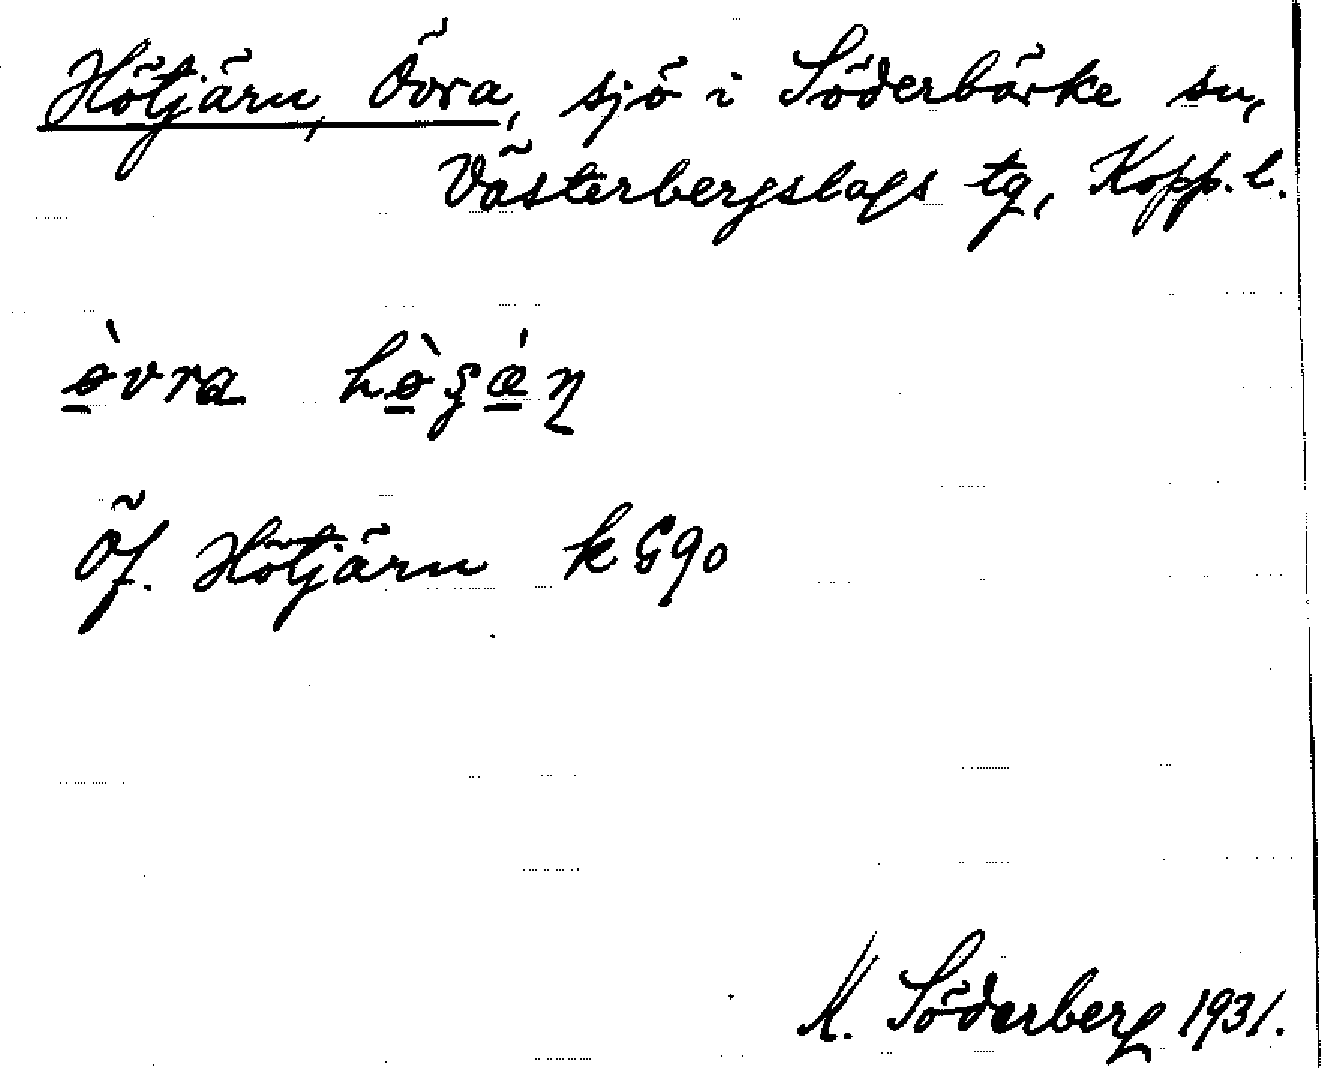 Hötjärn, Övra, sjö i Söderbärke sn,
Västerbergslags tg, Kopp. l.
ø̱̀vra hø̱̀ʒǽ̱ɳ
Öf. Hötjärn k G90
K. Söderberg 1931.